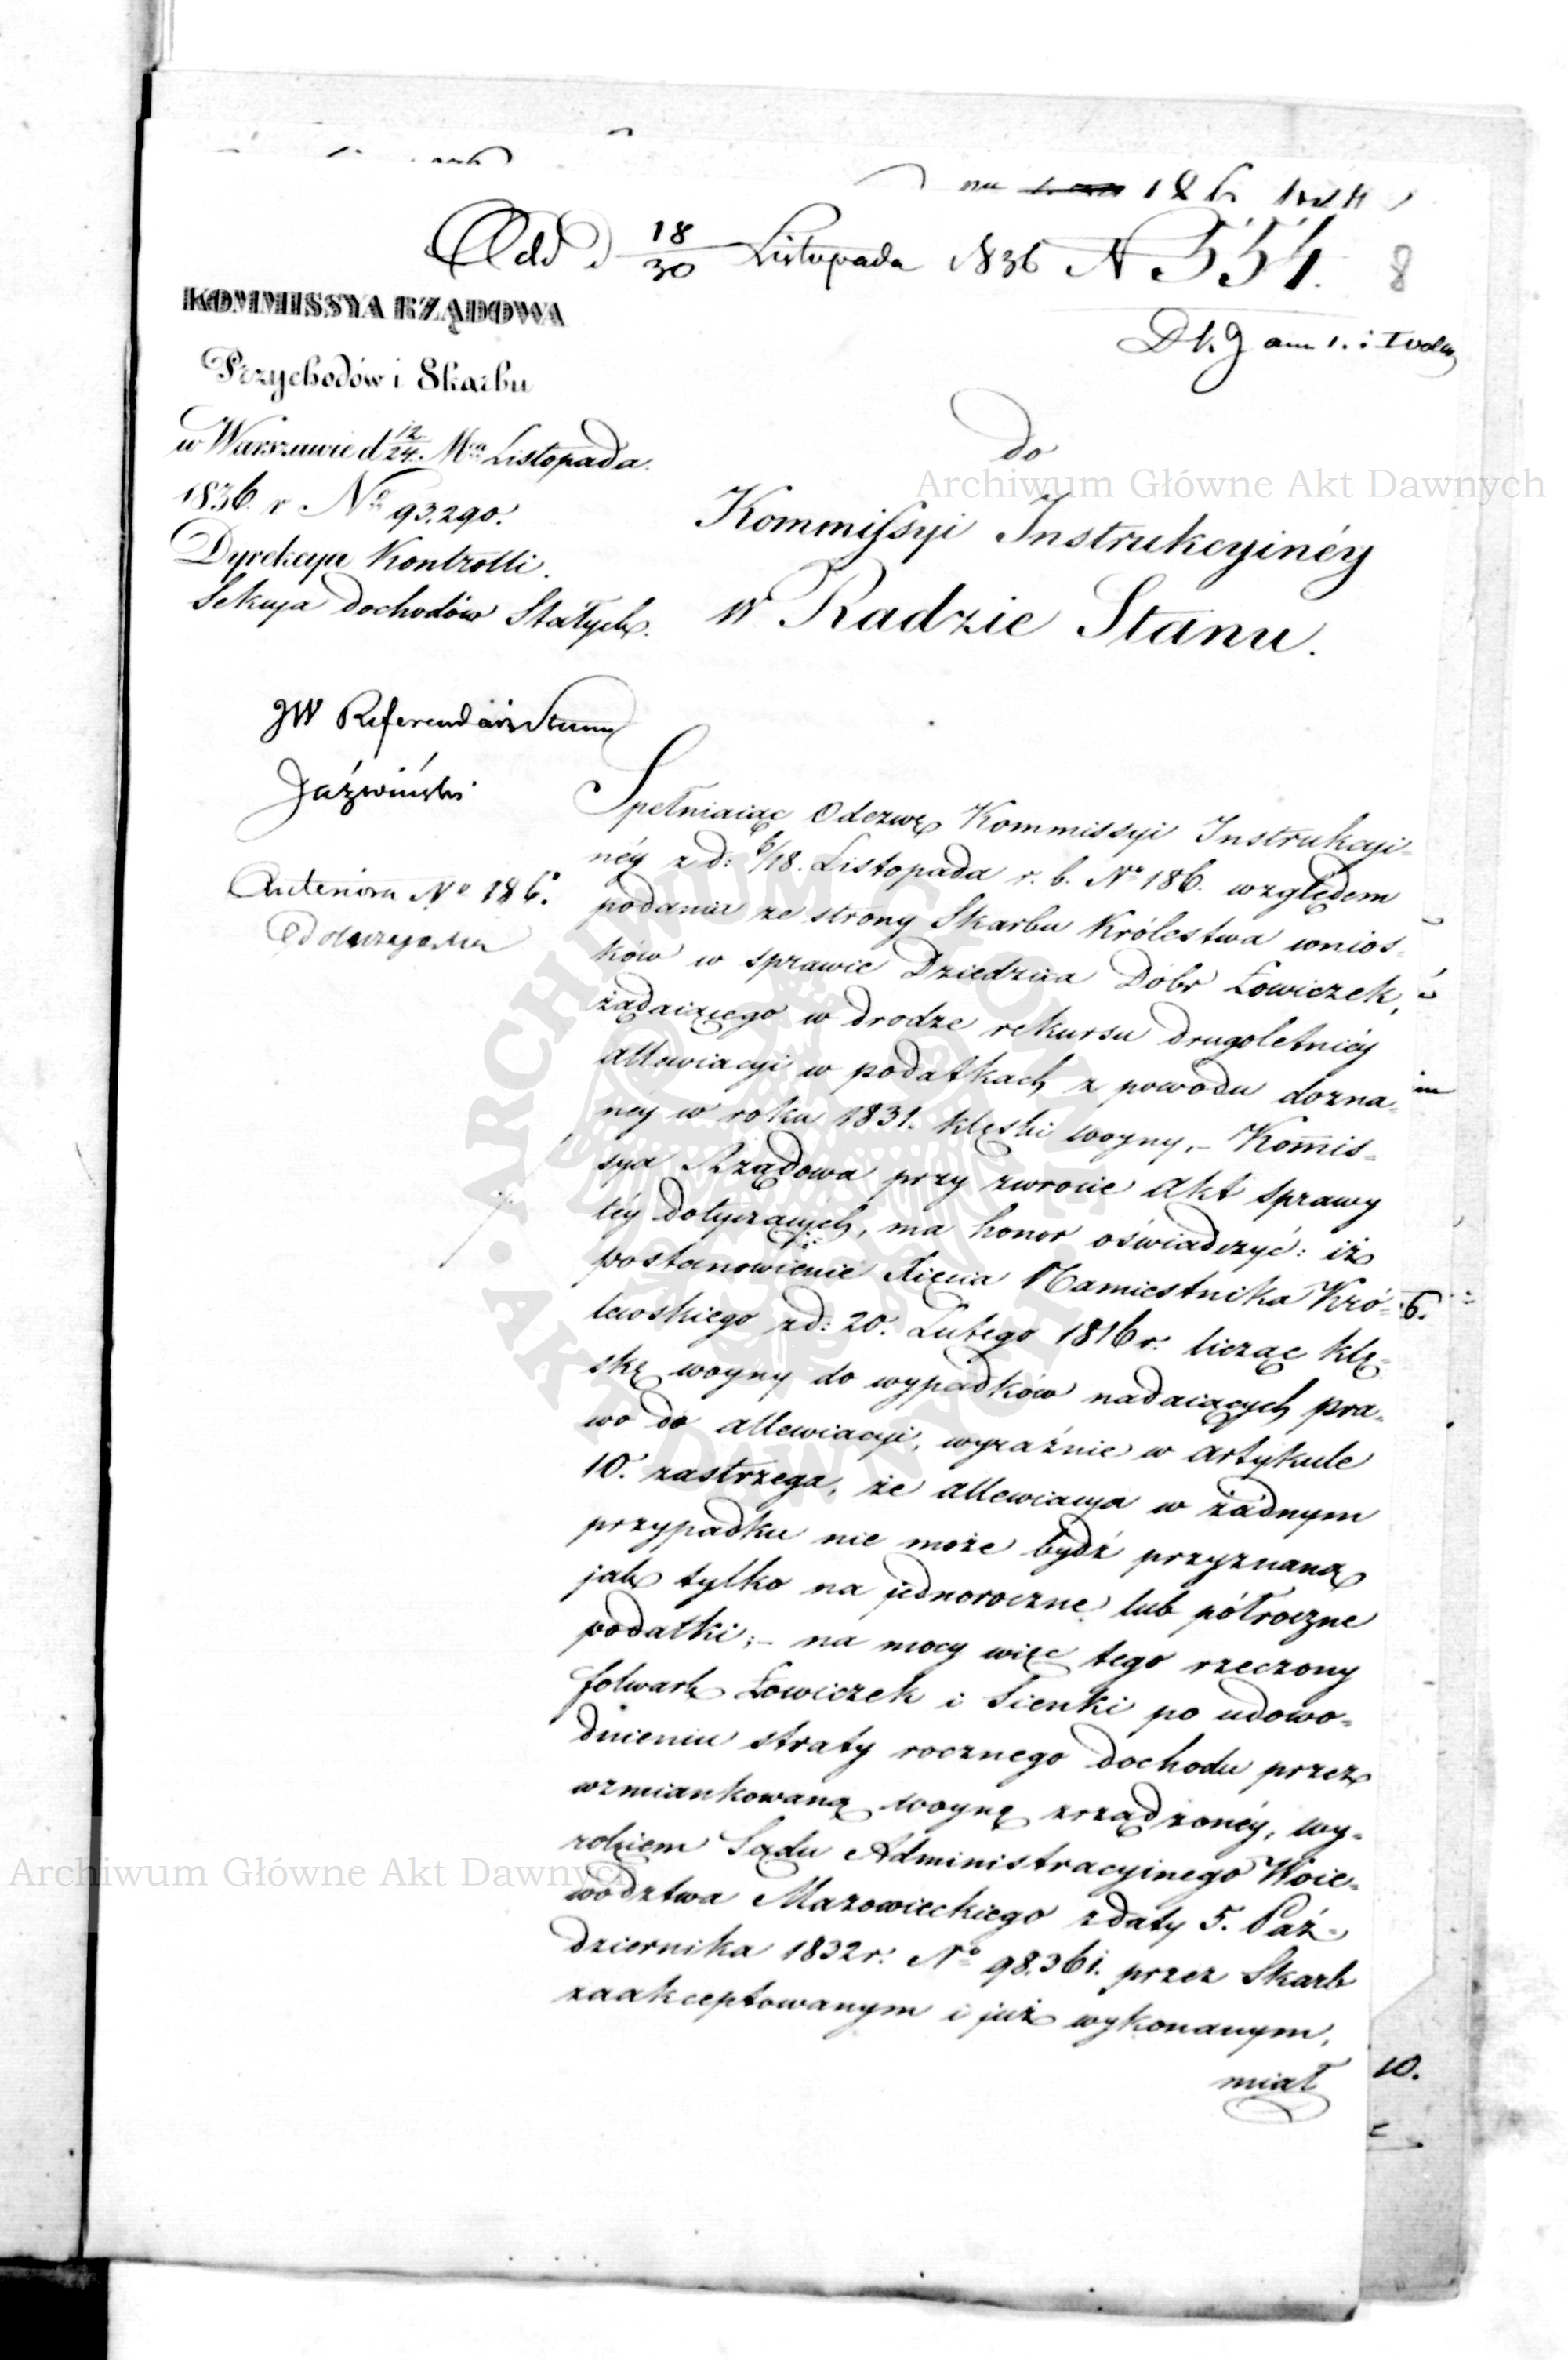 186
Odd d 18/30 Listopada 1836 N 554.
8
KOMMISSYA RZĄDOWA
Przychodów i Skarbu
w Warszawie d 12/24. Mca Listopada
1836. r No 93,290.
Dyrekcya Kontrolli.
Sekcya dochodów Stałych.
do
Kommissyi Instrukcyinéy
w Radzie Stanu.
JW Referendarz Stanu
Jaźwiński
Anteriora No 186.
Spełniaiąc Odezwę Kommissyi Instrukcyi-
néy z d: 6/18. Listopada r. b. No 186. względem
podania ze strony Skarbu Królestwa wnios-
ków w sprawie Dziedzica Dóbr Łowiczek,
żądaiącego w drodze rekursu drugoletniéy
allewiacyi w podatkach z powodu dozna-
néy w roku 1831. klęski woyny, - Kommis-
sya Rządowa przy zwrocie akt sprawy
téy dotyczących, ma honor oświadczyć: iż
postanowienie Xięcia Namiestnika Kró-
lewskiego z d: 20. Lutego 1816 r. licząc klę-
skę woyny do wypadków nadaiących pra-
wo do allewiacyi, wyraźnie w artykule
10. zastrzega, że allewiacya w żadnym
przypadku nie może bydź przyznaną
jak tylko na jednoroczne lub półroczne
podatki; - na mocy więc tego rzeczony
folwark Łowiczek i Sienki po udowo-
dnieniu straty rocznego dochodu przez
wzmiankowaną woynę zrządzonéy, wy-
rokiem Sądu Administracyinego Woie-
wództwa Mazowieckiego z daty 5. Paź-
dziernika 1832 r. No 98.361. przez Skarb
zaakceptowanym i już wykonanym,
miał
6.
10.
Archiwum Główne Akt Dawnych
Archiwum Główne Akt Dawnych
ARCHIWUM GŁÓWNE AKT DAWNYCH